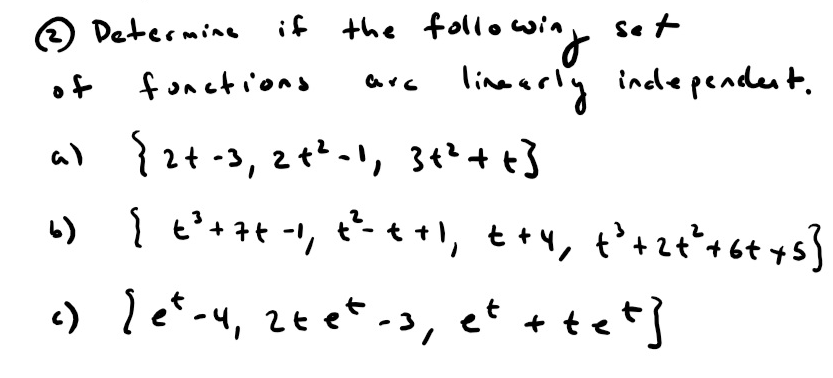 ② Determine if the following set
of functions are linearly independent.
a) { 2t - 3, 2t² - 1, 3t² + t }
b) { t³ + 7t - 1, t² - t + 1, t + 4, t³ + 2t² + 6t + 5 }
c) { eᵗ - 4, 2t eᵗ - 3, eᵗ + t eᵗ }